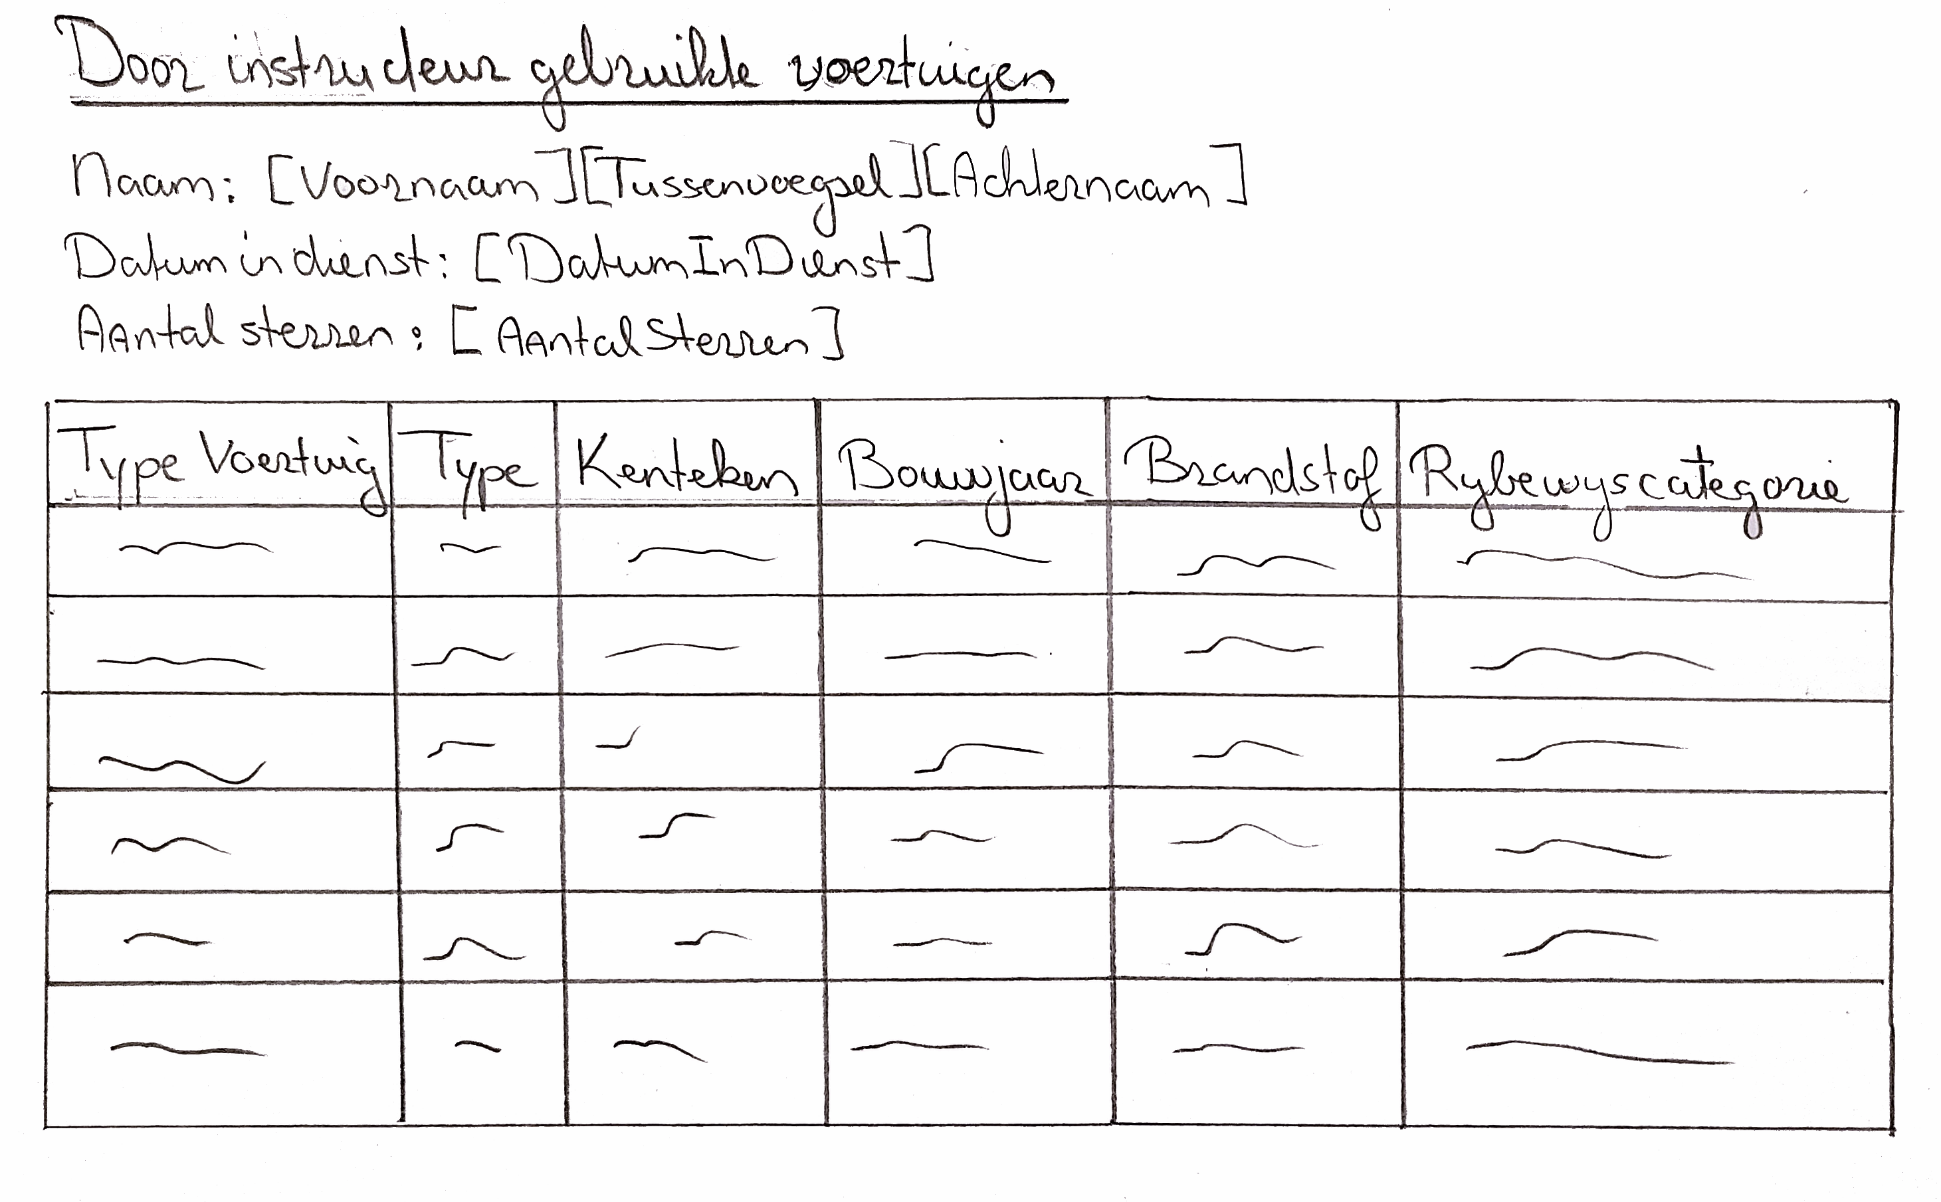 Door instructeur gebruikte voertuigen
Naam: [Voornaam][Tussenvoegsel][Achternaam]
Datum in dienst: [DatumInDienst]
Aantal sterren: [AantalSterren]
Type Voertuig Type Kenteken Bouwjaar Brandstof Rijbewijscategorie